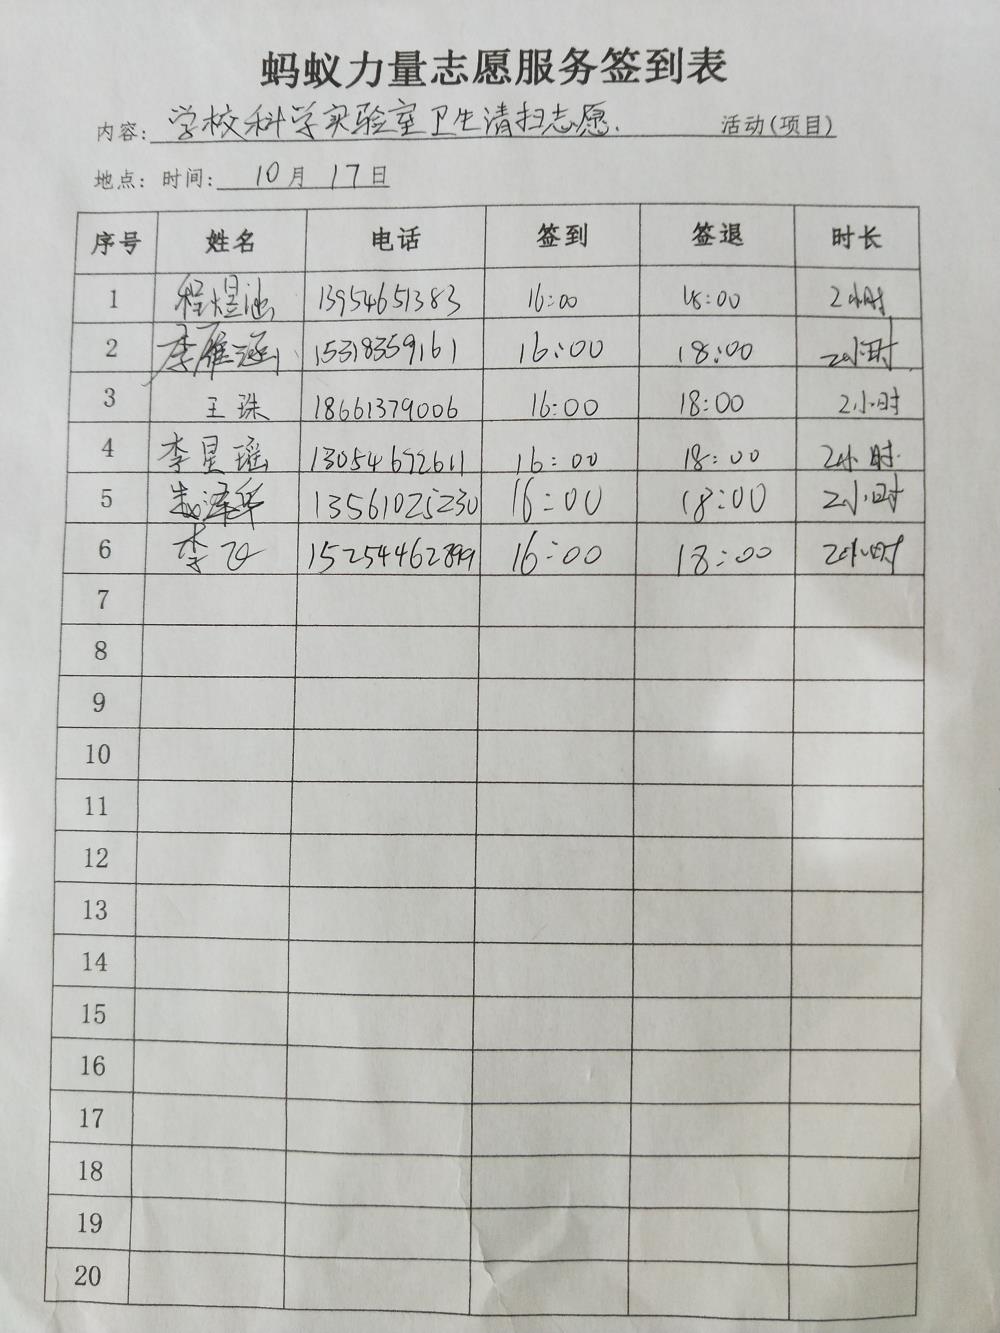 蚂蚁力量志愿服务签到表
内容: 学校科学实验室卫生清扫志愿. 活动(项目)
地点: 时间: 10月 17日
序号 姓名 电话 签到 签退 时长
1 程煜涵 13954651383 16:00 18:00 2小时
2 李雁涵 15318359161 16:00 18:00 2小时
3 王珠 18661379006 16:00 18:00 2小时
4 李星瑶 13054692611 16:00 18:00 2小时
5 13561025230 16:00 18:00 2小时
6 李飞 15254462899 16:00 18:00 2小时
7
8
9
10
11
12
13
14
15
16
17
18
19
20